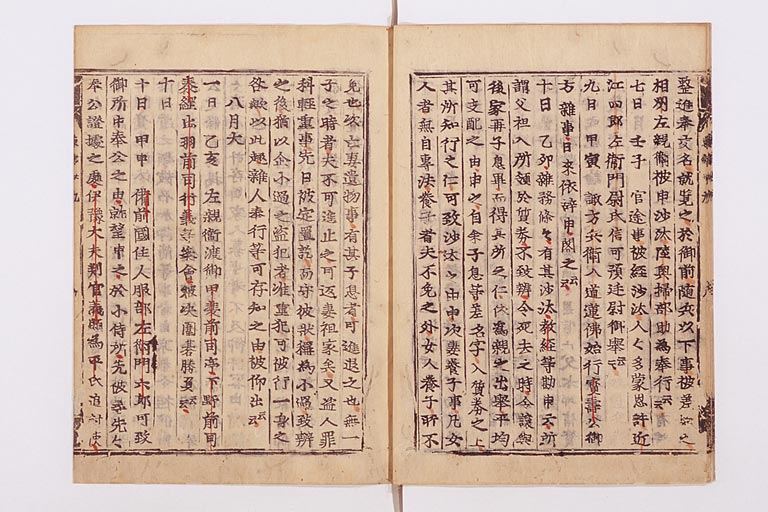 整進奉交名就覧之於御前随兵以下事被
相列左親衛被申沙汰陸奥掃部助為奉行云云
七日 壬子 官途事被経沙汰人々多蒙恩許近
江四郎左衛門尉氏信可預廷尉御挙云云
九日 甲寅 諏方兵衛入道蓮佛始行
方雑事日来依辞申闕之云云
十日 乙卯雑務條々有其沙汰教経等勘申云所
謂父祖入所領於質券不致弁令死去之時令譲与
後家母子息畢而得其所之仁依為親之出挙平均
可支配之由申之自余子息等差名字入質券之上
其所知行之仁可致沙汰之由申次妻養子事凡女
人者無自専法養子者夫不免之外女人養子所不
免也次亡妻遺物事有其子息者可進退之也無一
子之時者夫不可進止之可返妻祖家矣又盗人罪
科軽重事先日被定置訖而守彼状称為小過致弁
之後猶以企小過之盗犯者准重犯可被行一身之
咎歟以此趣雑人奉行等可存知之由被仰出云云
八月大
一日 乙亥 左親衛渡御甲斐前司亭下野前司
泰経出羽前司行義等参会有囲碁勝負云云
十日 甲申 備前國住人服部左衛門六郎可致
御所中奉公之由就望申之於小侍所先彼等先々
奉公證拠之處伊豫大夫判官義経為平氏追討使